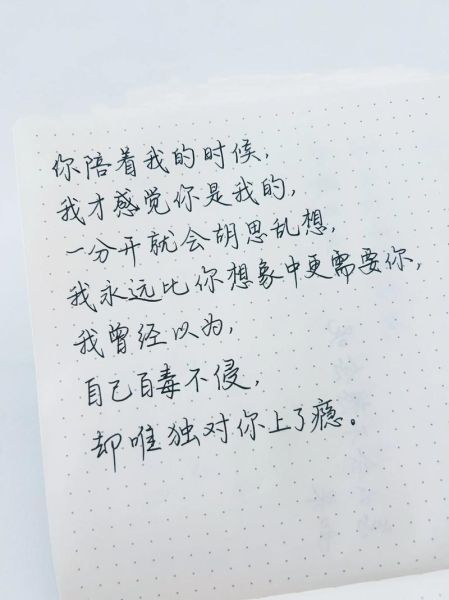 你陪着我的时候，
我才感觉你是我的，
一分开就会胡思乱想，
我永远比你想象中更需要你，
我曾经以为，
自己百毒不侵，
却唯独对你上了瘾。